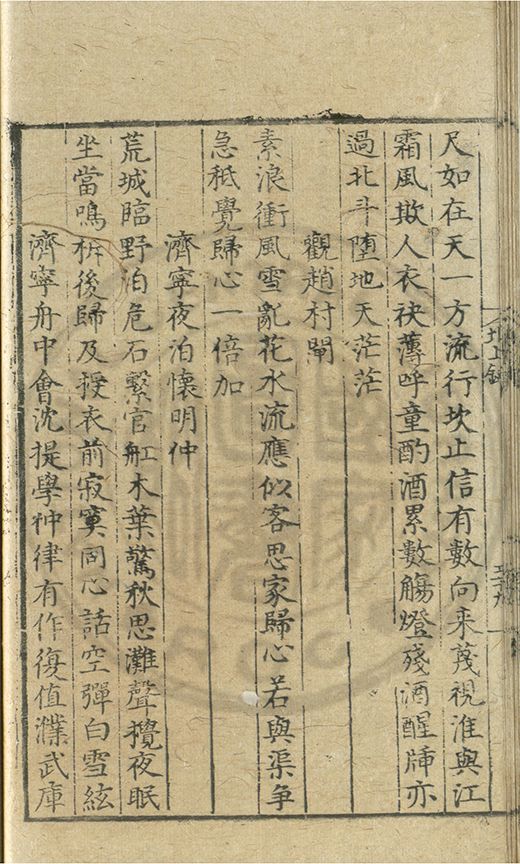 尺如在天一方流行坎止信有數向来蔑視淮與江
霜風欺人衣袂薄呼童酌酒累數觴燈殘酒醒牀亦
過北斗墮地天茫茫
觀趙村閘
素浪衝風雪亂花水流應似客思家歸心若與渠争
急秪覺歸心一倍加
濟寧夜泊懷明仲
荒城臨野泊危石繫官舡木葉驚秋思灘聲攪夜眠
坐當鳴柝後歸及授衣前寂寞同心話空彈白雪絃
濟寧舟中會沈提學仲律有作復值濮武庫